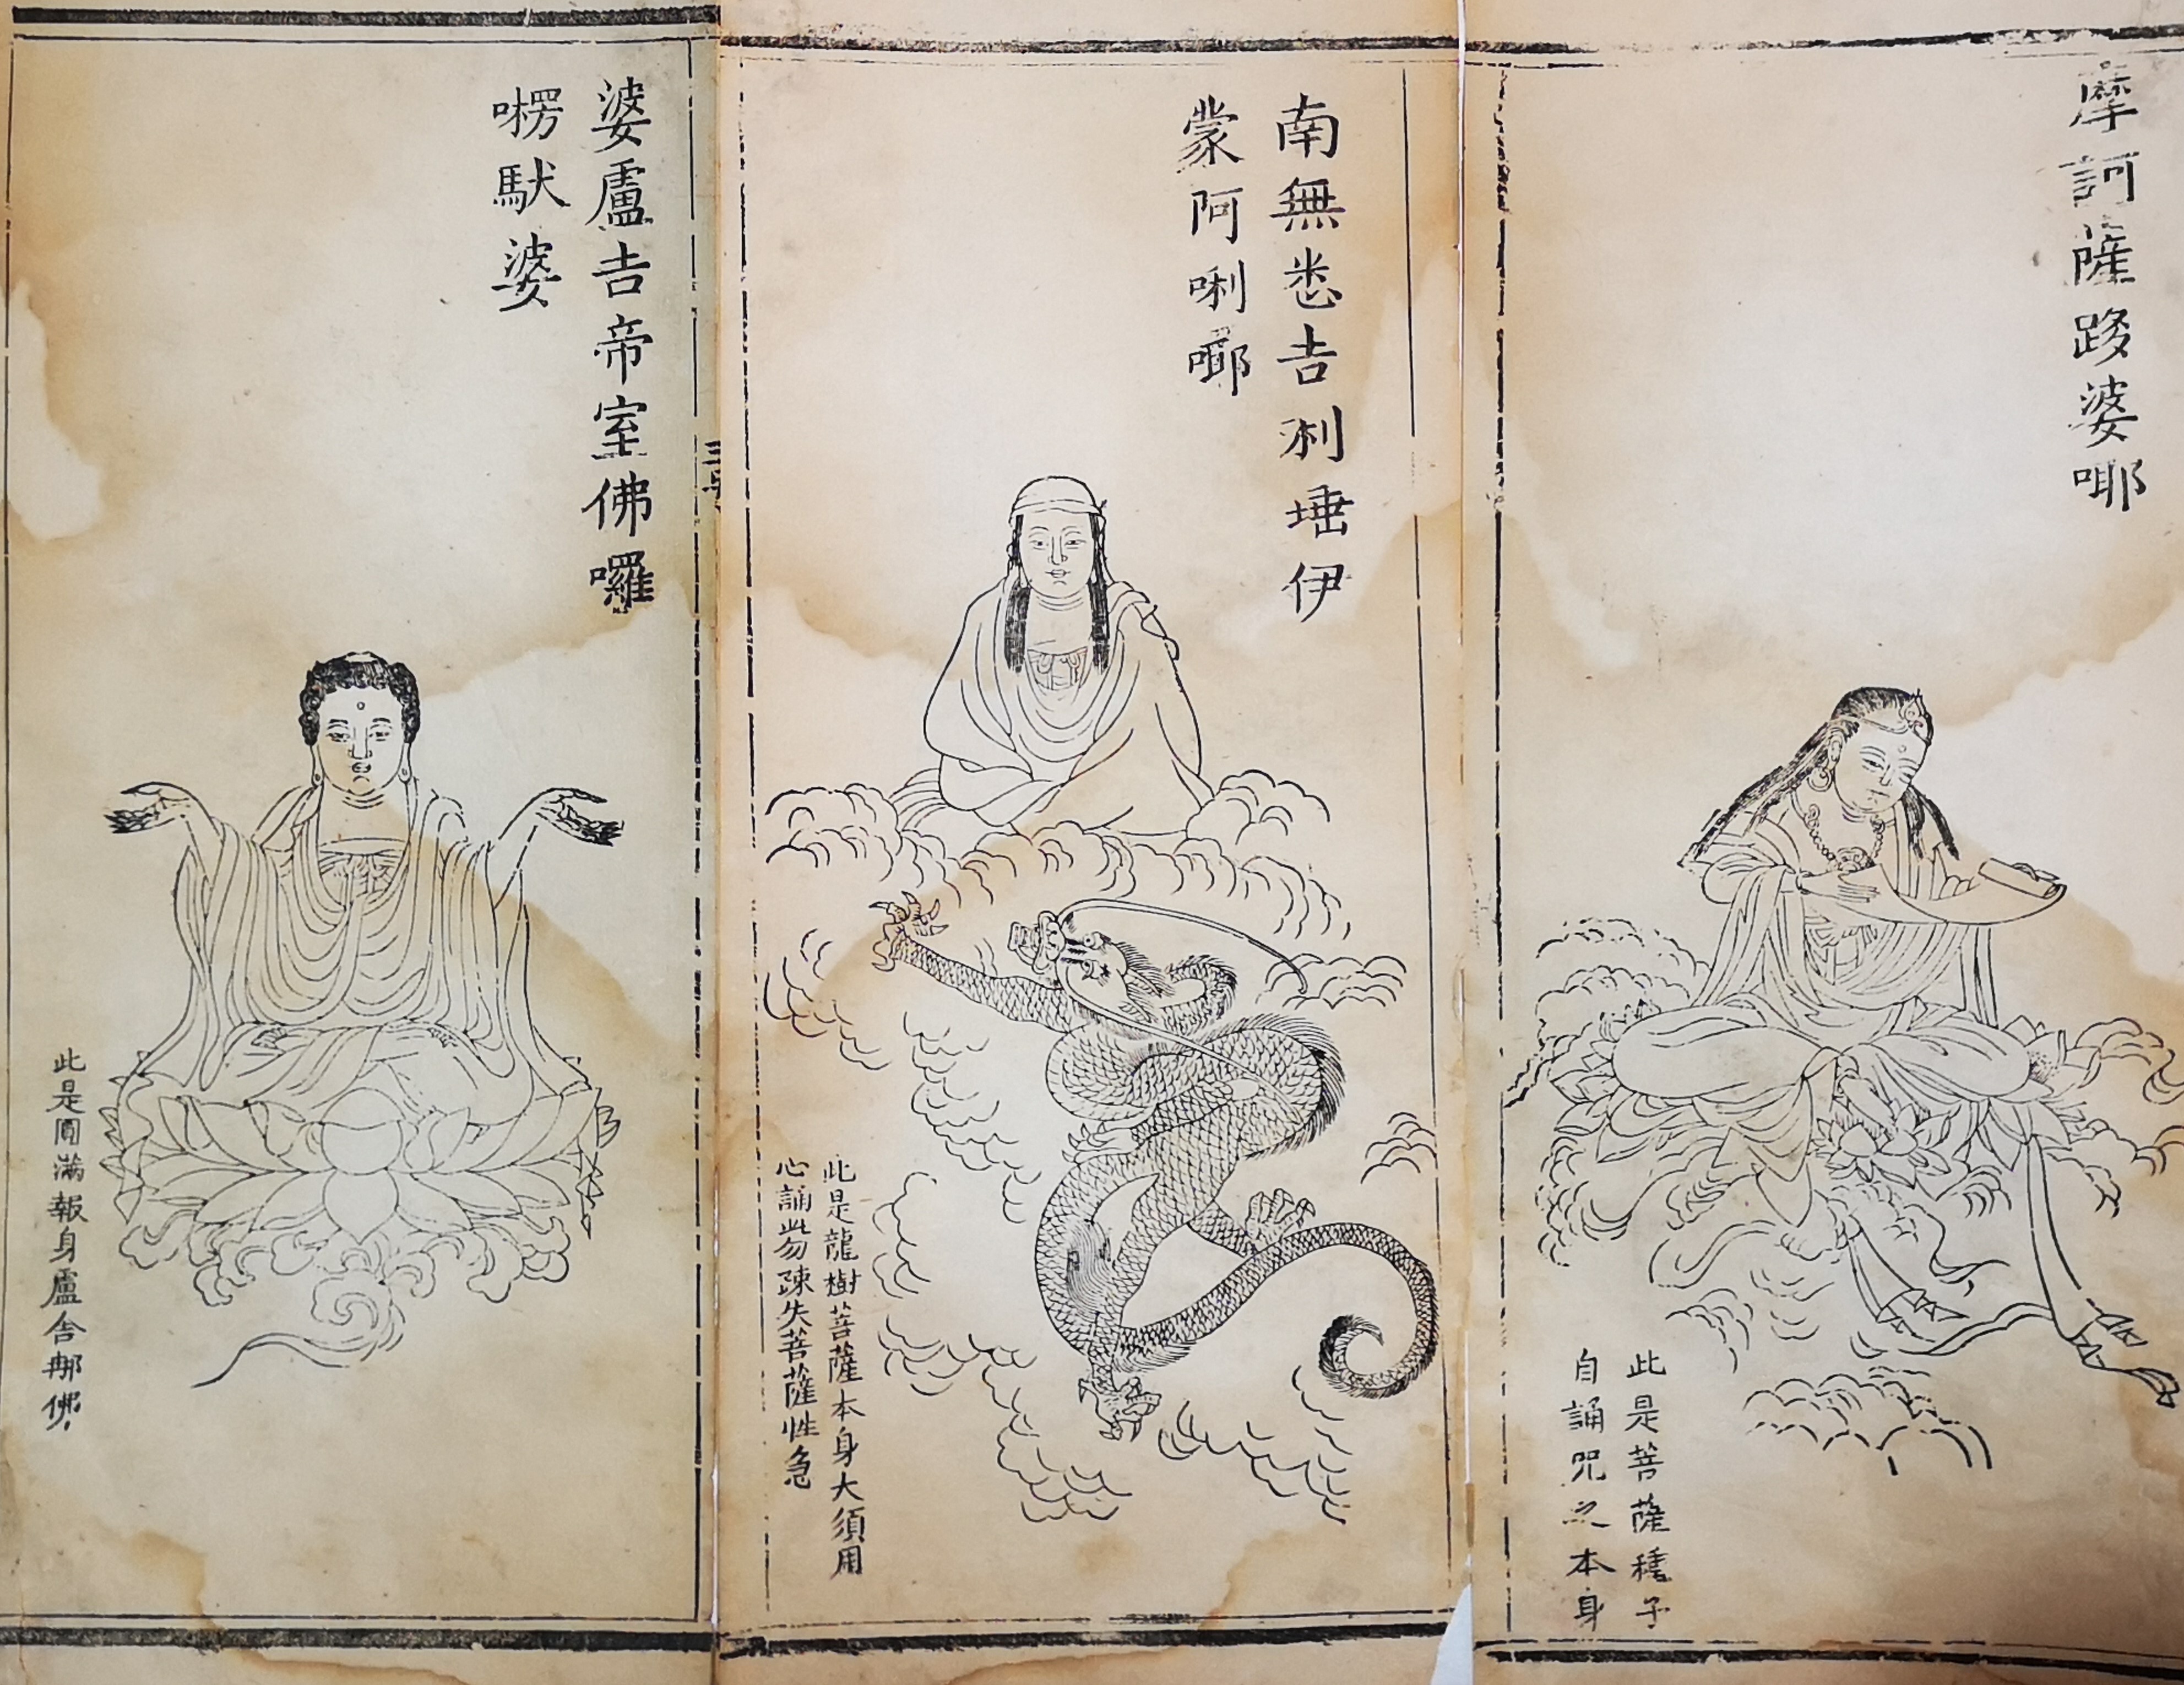 摩訶薩跢婆㖿
此是菩薩種子
自誦呪之本身
南無悉吉利埵伊
蒙阿唎㗿
此是龍樹菩薩本身大須用
心誦此勿疎失菩薩性急
婆盧吉帝室佛囉
㘄馱婆
此是圓滿報身盧舍那佛